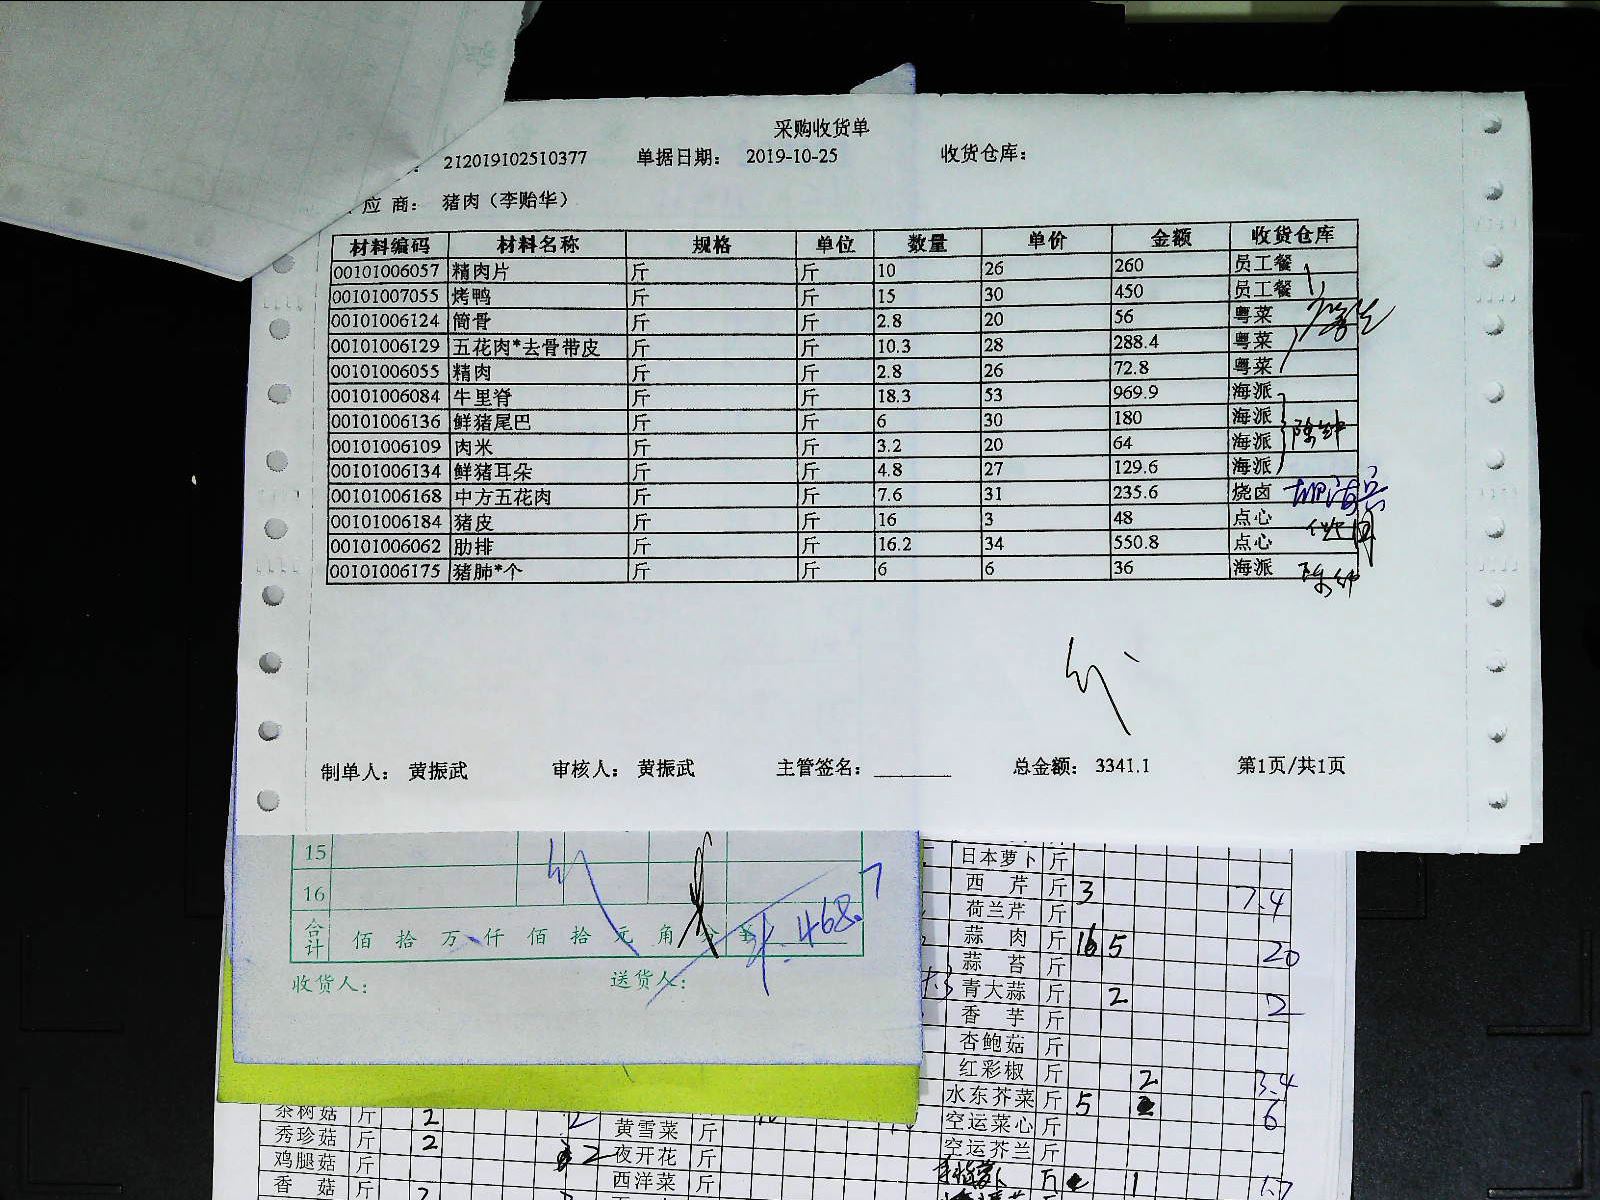 采购收货单
212019102510377 单据日期： 2019-10-25 收货仓库：
应 商： 猪肉（李贻华）
材料编码 材料名称 规格 单位 数量 单价 金额 收货仓库
00101006057 精肉片 斤 斤 10 26 260 员工餐
00101007055 烤鸭 斤 斤 15 30 450 员工餐
00101006124 筒骨 斤 斤 2.8 20 56 粤菜
00101006129 五花肉*去骨带皮 斤 斤 10.3 28 288.4 粤菜
00101006055 精肉 斤 斤 2.8 26 72.8 粤菜
00101006084 牛里脊 斤 斤 18.3 53 969.9 海派
00101006136 鲜猪尾巴 斤 斤 6 30 180 海派
00101006109 肉米 斤 斤 3.2 20 64 海派
00101006134 鲜猪耳朵 斤 斤 4.8 27 129.6 海派
00101006168 中方五花肉 斤 斤 7.6 31 235.6 烧卤
00101006184 猪皮 斤 斤 16 3 48 点心
00101006062 肋排 斤 斤 16.2 34 550.8 点心
00101006175 猪肺*个 斤 斤 6 6 36 海派
制单人： 黄振武 审核人： 黄振武 主管签名： 总金额： 3341.1 第1页/共1页
15
16
合计 佰 拾 万 仟 佰 拾 元 角 分 468.7
收货人： 送货人：
日本萝卜 斤
西芹 斤 3 7.4
荷兰芹 斤
蒜肉 斤 16 5 20
蒜苔 斤
青大蒜 斤 2 2
香芋 斤
杏鲍菇 斤
红彩椒 斤 2 3.4
水东芥菜 斤 5 6
空运菜心 斤
空运芥兰 斤
斤 1 1.7
茶树菇 斤 2 2 黄雪菜 斤
秀珍菇 斤 2 2 夜开花 斤
鸡腿菇 斤 西洋菜 斤
香菇 斤 2